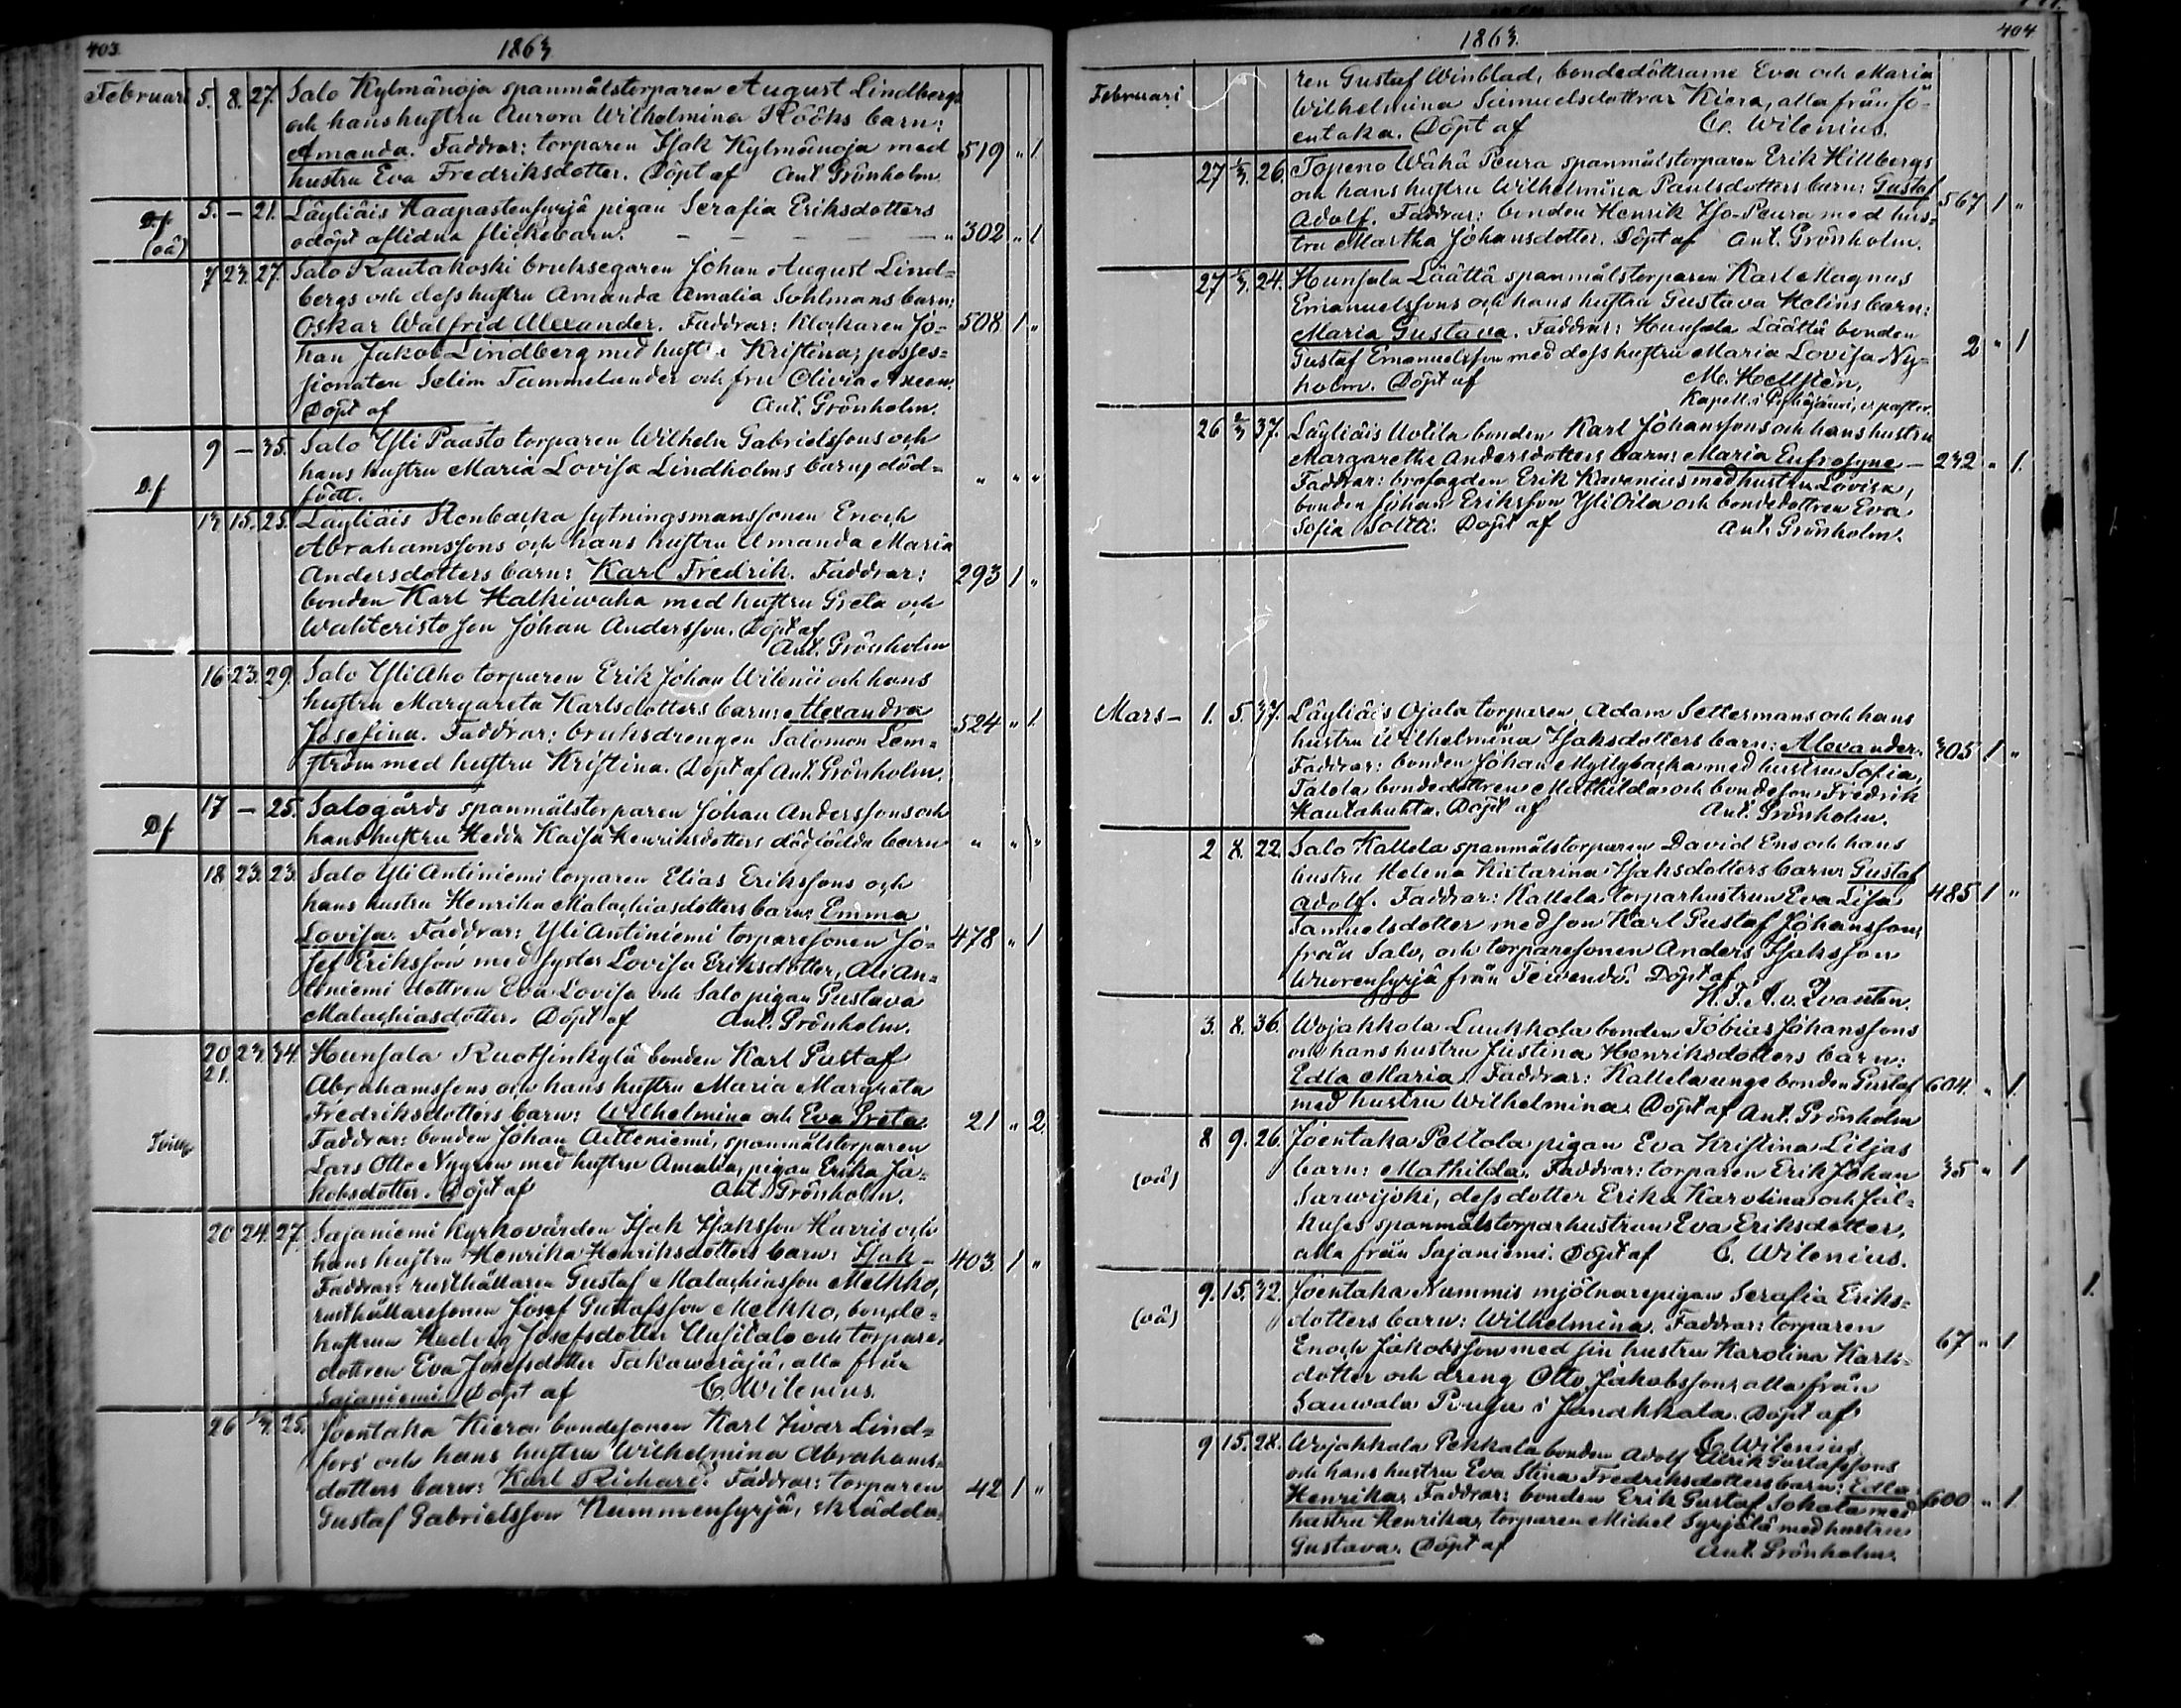 403. 1863
Februari 5. 8. 27. Salo Kylmänoja spanmålstorparen August Lindbergs
och hans hustru Aurora Wilhelmina Rööks barn:
Amanda. Faddrar: torparen Isak Kylmänoja med 519 " 1.
hustru Eva Fredriksdotter. Döpt af Ant. Grönholm.
D.f (oä) 5. — 21. Läyliäis Haapastensyrjä pigan Serafia Eriksdotters
odöpt aflidna flickebarn. — — — — — " 302 " 1
7 23. 27. Salo Rautakoski bruksegaren Johan August Lind=
bergs och dess hustru Amanda Amalia Sohlmans barn:
Oskar Walfrid Alexander. Faddrar: Klockaren Jo= 508 1 "
han Jakob Lindberg med hustru Kristina; posses=
sionaten Selim Tammelander och fru Olivia
Döpt af Ant. Grönholm.
D.f 9 — 35. Salo Yli Paasto torparen Wilhelm Gabrielssons och
hans hustru Maria Lovisa Lindholms barn, död= " " "
födt.
13. 15. 25. Läyliäis Stenbacka sytningsmanssonen Enoch
Abrahamssons och hans hustru Amanda Maria
Andersdotters barn: Karl Fredrik. Faddrar: 293 1 "
bonden Karl Halkiwaha med hustru Greta och
Wahteristo son Johan Andersson. Döpt af
Ant. Grönholm
16. 23. 29. Salo Yli Aho torparen Erik Johan Wilenii och hans
hustru Margareta Karlsdotters barn: Alexandra 524 " 1.
Josefina. Faddrar: bruksdrengen Salomon Lem=
ström med hustru Kristina. Döpt af Ant. Grönholm.
Df 17 — 25. Salogårds spanmålstorparen Johan Anderssons och
hans hustru Hedda Kaisa Henriksdotters dödfödda barn " " "
18 23. 23. Salo Yli Antiniemi torparen Elias Erikssons och
hans hustru Henrika Malachiasdotters barn: Emma
Lovisa. Faddrar: Yli Antiniemi torparesonen Jo= 478 " 1
sef Eriksson med syster Lovisa Eriksdotter, Ali An=
tiniemi dottren Eva Lovisa och Salo pigan Gustava
Malachiasdotter. Döpt af Ant. Grönholm.
20 21. 23. 34. Hunsala Ruotsinkylä bonden Karl Gustaf
Abrahamssons och hans hustru Maria Margreta
Fredriksdotters barn: Wilhelmina och Eva Greta. 21 " 2.
Faddrar: bonden Johan Aitteniemi, spanmålstorparen
Lars Otto Nygren med hustru Amalia, pigan Erika Ja=
kobsdotter. Döpt af Ant. Grönholm.
20 24. 27. Sajaniemi Kyrkovärden Isak Isaksson Harris och
hans hustru Henrika Henriksdotters barn: Isak — 403. 1 "
Faddrar: rusthållaren Gustaf Malachiasson Melkko,
rusthållaresonen Josef Gustafsson Melkko, bonde=
hustrun Hedvig Josefsdotter Uusitalo och torpare=
dottren Eva Josefsdotter Takaweräjä, alla från
Sajaniemi. Döpt af C. Wilenius.
26 1/3. 25. Joentaka Kiera bondesonen Karl Iwar Lind=
fors och hans hustru Wilhelmina Abrahams=
dotters barn: Karl Richard. Faddrar: torparen 42 1 "
Gustaf Gabrielsson Nummensyrjä, skrädda=
1863. 404
Februari ren Gustaf Winblad, bondedöttrarne Eva och Maria
Wilhelmina Samuelsdöttrar Kiera, alla från Jo=
entaka. Döpt af C. Wilenius.
27 1/3. 26. Topeno Wähä Peura spanmålstorparen Erik Hillbergs
och hans hustru Wilhelmina Paulsdotters barn: Gustaf 567 1 "
Adolf. Faddrar: bonden Henrik Iso-Peura med hus=
tru Martha Johansdotter. Döpt af Ant. Grönholm.
27 1/3. 24. Hunsala Läättä spanmålstorparen Karl Magnus
Emanuelssons och hans hustru Gustava Helins barn:
Maria Gustava. Faddrar: Hunsala Läättä bonden 2 " 1
Gustaf Emanuelsson med dess hustru Maria Lovisa Ny=
holm. Döpt af M. Hellstén,
Kapell. i Pyhäjärvi,
26 2/3 37. Läyliäis Uotila bonden Karl Johanssons och hans hustru
Margaretha Andersdotters barn: Maria Eufrosyne — 232 " 1.
Faddrar: brofogden Erik Kavenius med hustru Lovisa,
bonden Johan Eriksson Yli Oila och bondedottren Eva
Sofia Soltti. Döpt af Ant. Grönholm.
Mars — 1. 5. 37. Läyliäis Ojala torparen Adam Settermans och hans
hustru Wilhelmina Isaksdotters barn: Alexander. 305 1 "
Faddrar: bonden Johan Myllybacka med hustru Sofia,
Talola bondedottren Mathilda och bondeson Fredrik
Hautakulta. Döpt af Ant. Grönholm.
2 8. 22. Salo Kallela spanmålstorparen David Ens och hans
hustru Helena Katarina Isaksdotters barn: Gustaf
Adolf. Faddrar: Kallela torparhustrun Eva Lisa 485 1 "
Samuelsdotter med son Karl Gustaf Johansson,
från Salo, och torparesonen Anders Isaksson
Wuorensyrjä från Tewendö. Döpt af
H. F. A. v. Qvanten.
3. 8. 36. Wojakkola Luukkola bonden Tobias Johanssons
och hans hustru Justina Henriksdotters barn:
Edla Maria. Faddrar: Kallela unge bonden Gustaf 604. " 1.
med hustru Wilhelmina. Döpt af Ant. Grönholm
(oä) 8 9. 26. Joentaka Peltola pigan Eva Kristina Liljas
barn: Mathilda. Faddrar: torparen Erik Johan 35 " 1
Sarwijoki, dess dotter Erika Karolina och Jäl=
kuses spanmålstorparhustrun Eva Eriksdotter,
alla från Sajaniemi. Döpt af C. Wilenius.
(oä) 9. 15. 32. Joentaka Nummis mjölnarepigan Serafia Eriks= 1.
dotters barn: Wilhelmina. Faddrar: torparen
Enoch Jakobsson med sin hustru Karolina Karls= 67 " 1
dotter och dreng Otto Jakobsson, alla från
Sauwala Ruga i Janakkala. Döpt af
C. Wilenius.
9 15. 28. Wojakkala Pekkala bonden Adolf Ulrik Gustafssons
och hans hustru Eva Stina Fredriksdotters barn: Edla
Henrika. Faddrar: bonden Erik Gustaf Sokala med 600 " 1.
hustru Henrika, torparen Mickel Syrjälä med hustru
Gustava. Döpt af Ant. Grönholm.